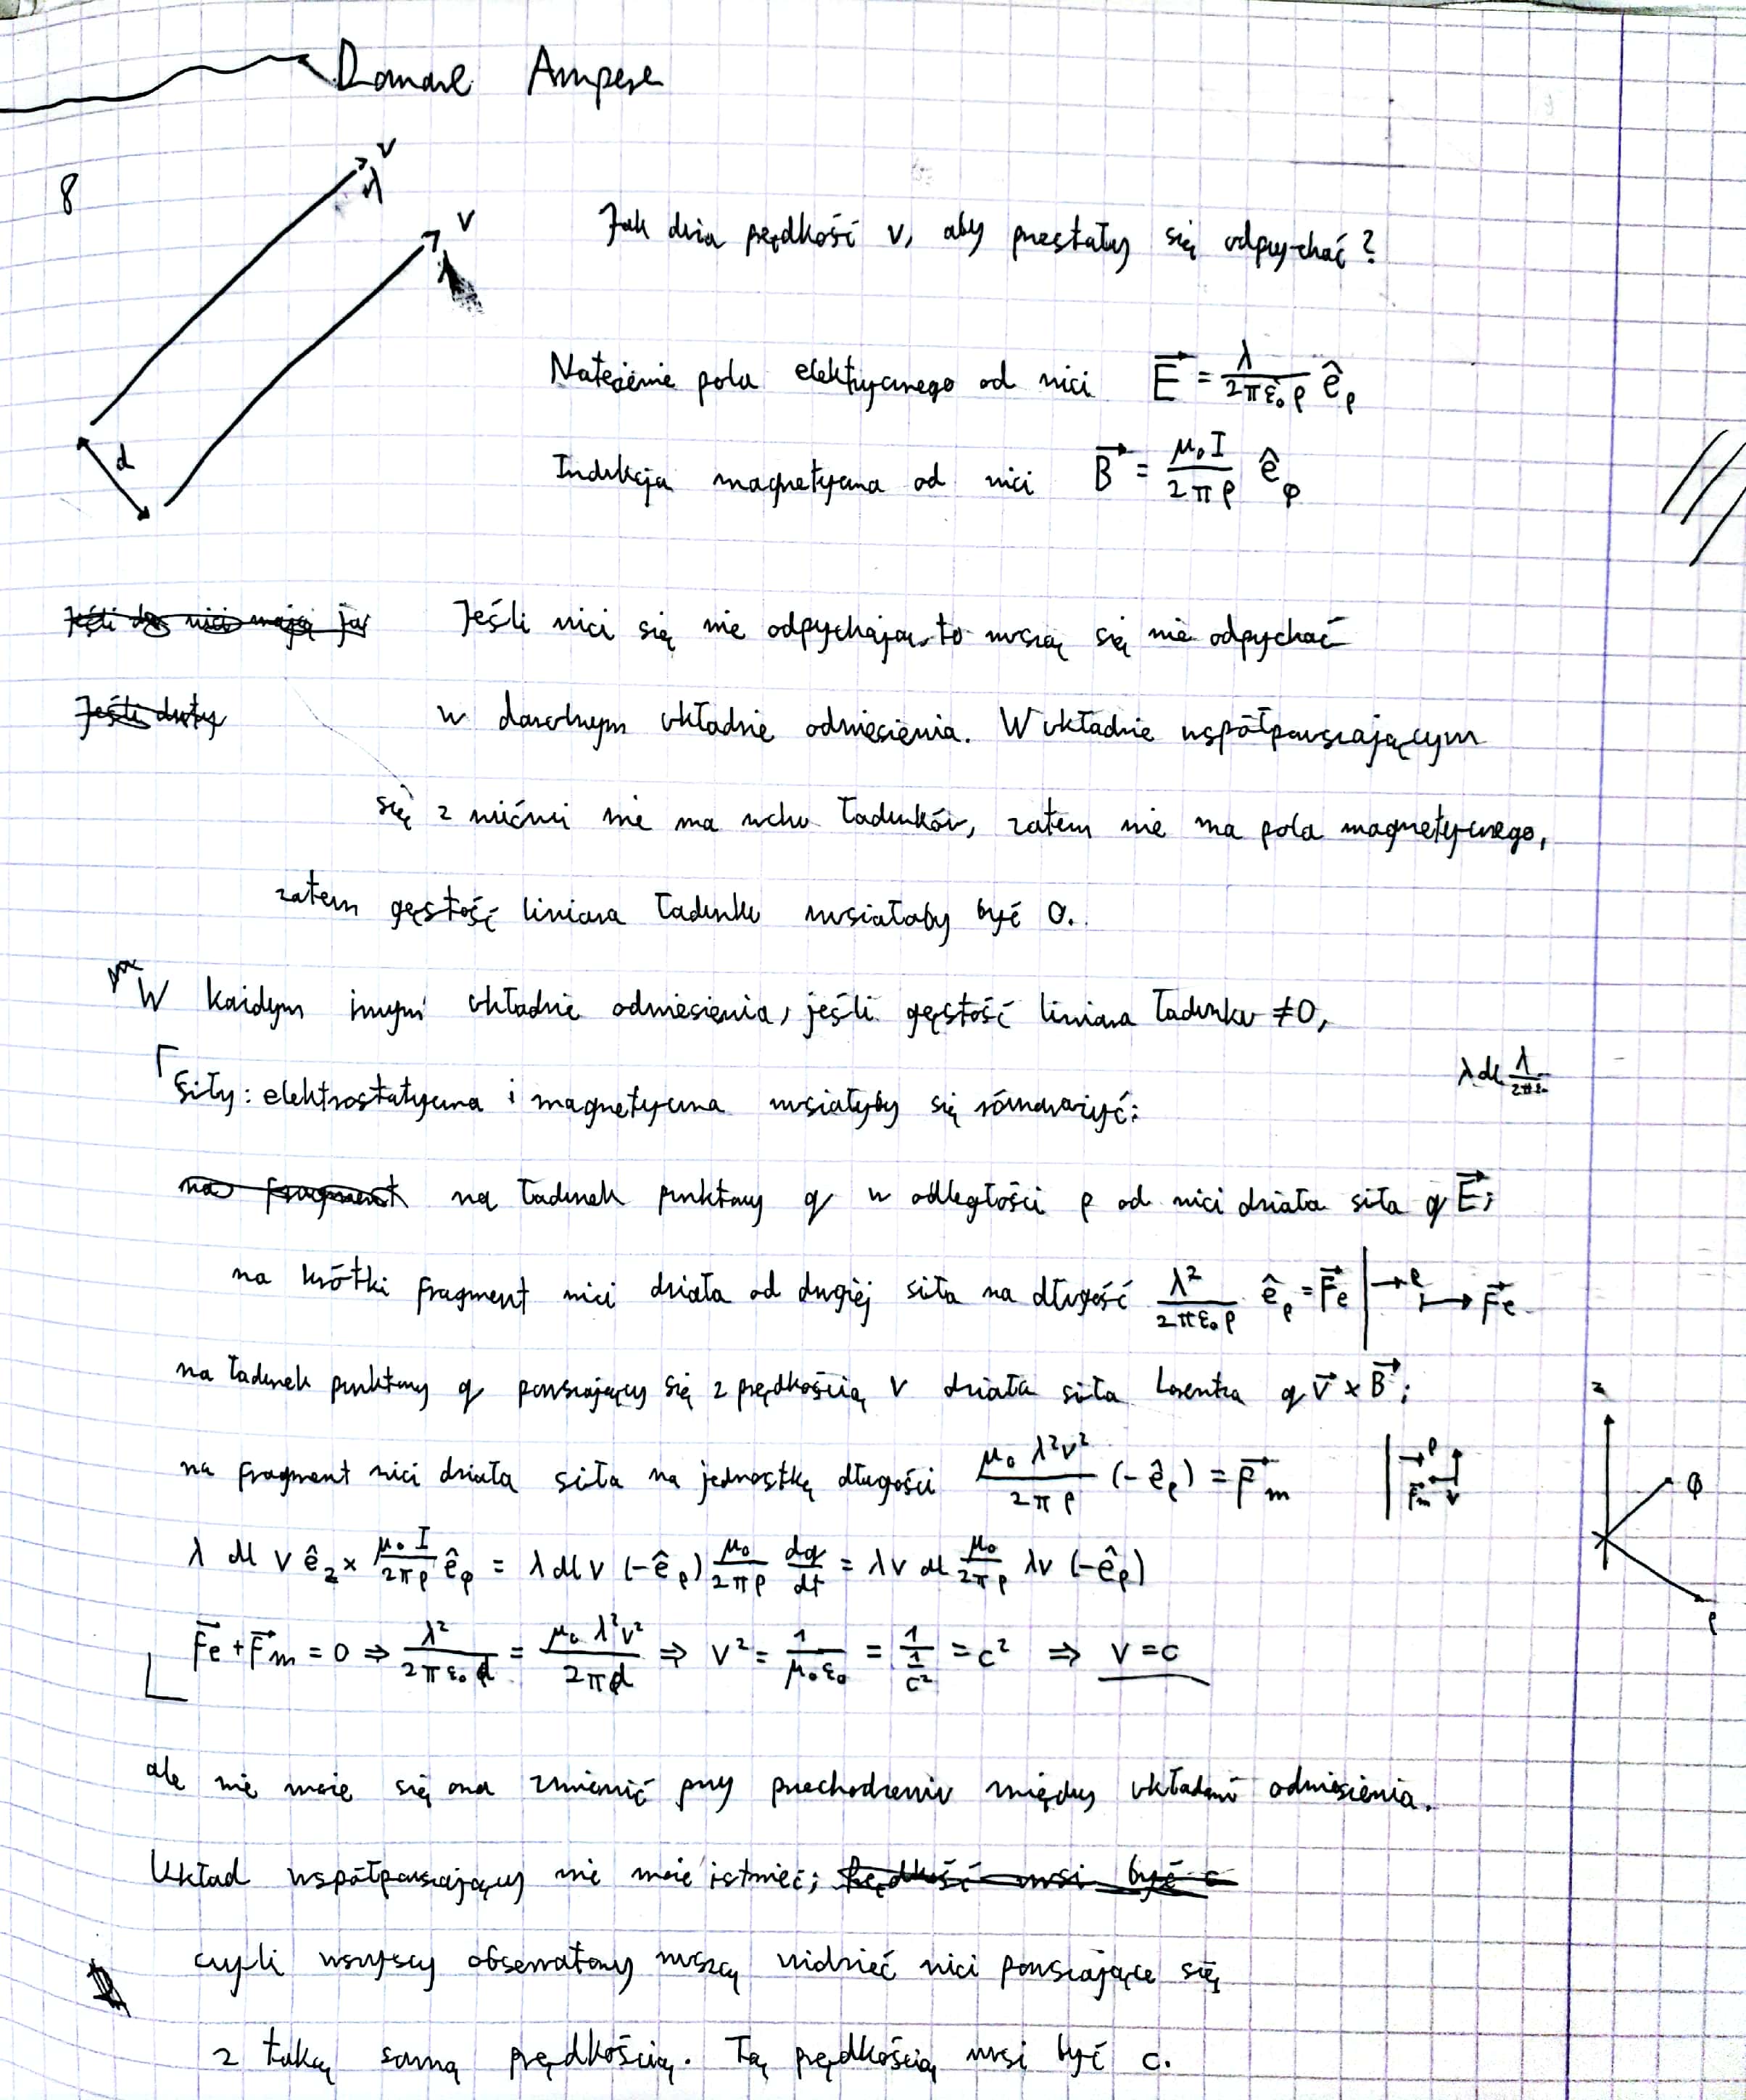 Ampere
8
v
λ
v
λ
d
Jak dużą prędkość v, aby przestały się odpychać?
Natężenie pola elektrycznego od nici E⃗ = λ/(2πε₀ρ) ê_ρ
Indukcja magnetyczna od nici B⃗ = μ₀I/(2πρ) ê_φ
Jeśli nici się nie odpychają, to muszą się nie odpychać
w dowolnym układzie odniesienia. W układzie współporuszającym
się z nićmi nie ma ruchu ładunków, zatem nie ma pola magnetycznego,
zatem gęstość liniowa ładunku musiałaby być 0.
W każdym innym układzie odniesienia, jeśli gęstość liniowa ładunku ≠0,
λ dl λ/(2πε₀
siły: elektrostatyczna i magnetyczna musiałyby się równoważyć:
na fragment na ładunek punktowy q w odległości ρ od nici działa siła qE⃗;
na krótki fragment nici działa od drugiej siła na długość λ²/(2πε₀ρ) ê_ρ = F⃗e | → ρ → F⃗e
na ładunek punktowy q poruszający się z prędkością v działa siła Lorentza q v⃗ × B⃗;
na fragment nici działa siła na jednostkę długości μ₀λ²v²/(2πρ) (-ê_ρ) = F⃗m | → ρ F⃗m v
z
φ
ρ
λ dl v ê_z × μ₀I/(2πρ) ê_φ = λ dl v (-ê_ρ) μ₀/(2πρ) dq/dt = λv dl μ₀/(2πρ) λv (-ê_ρ)
F⃗e + F⃗m = 0 ⇒ λ²/(2πε₀d) = μ₀λ²v²/(2πd) ⇒ v² = 1/(μ₀ε₀) = 1/(1/c²) = c² ⇒ v = c
ale nie może się ona zmienić przy przechodzeniu między układami odniesienia.
Układ współporuszający nie może istnieć; Prędkość musi być c
czyli wszyscy obserwatorzy muszą widzieć nici poruszające się
z taką samą prędkością. Tą prędkością musi być c.